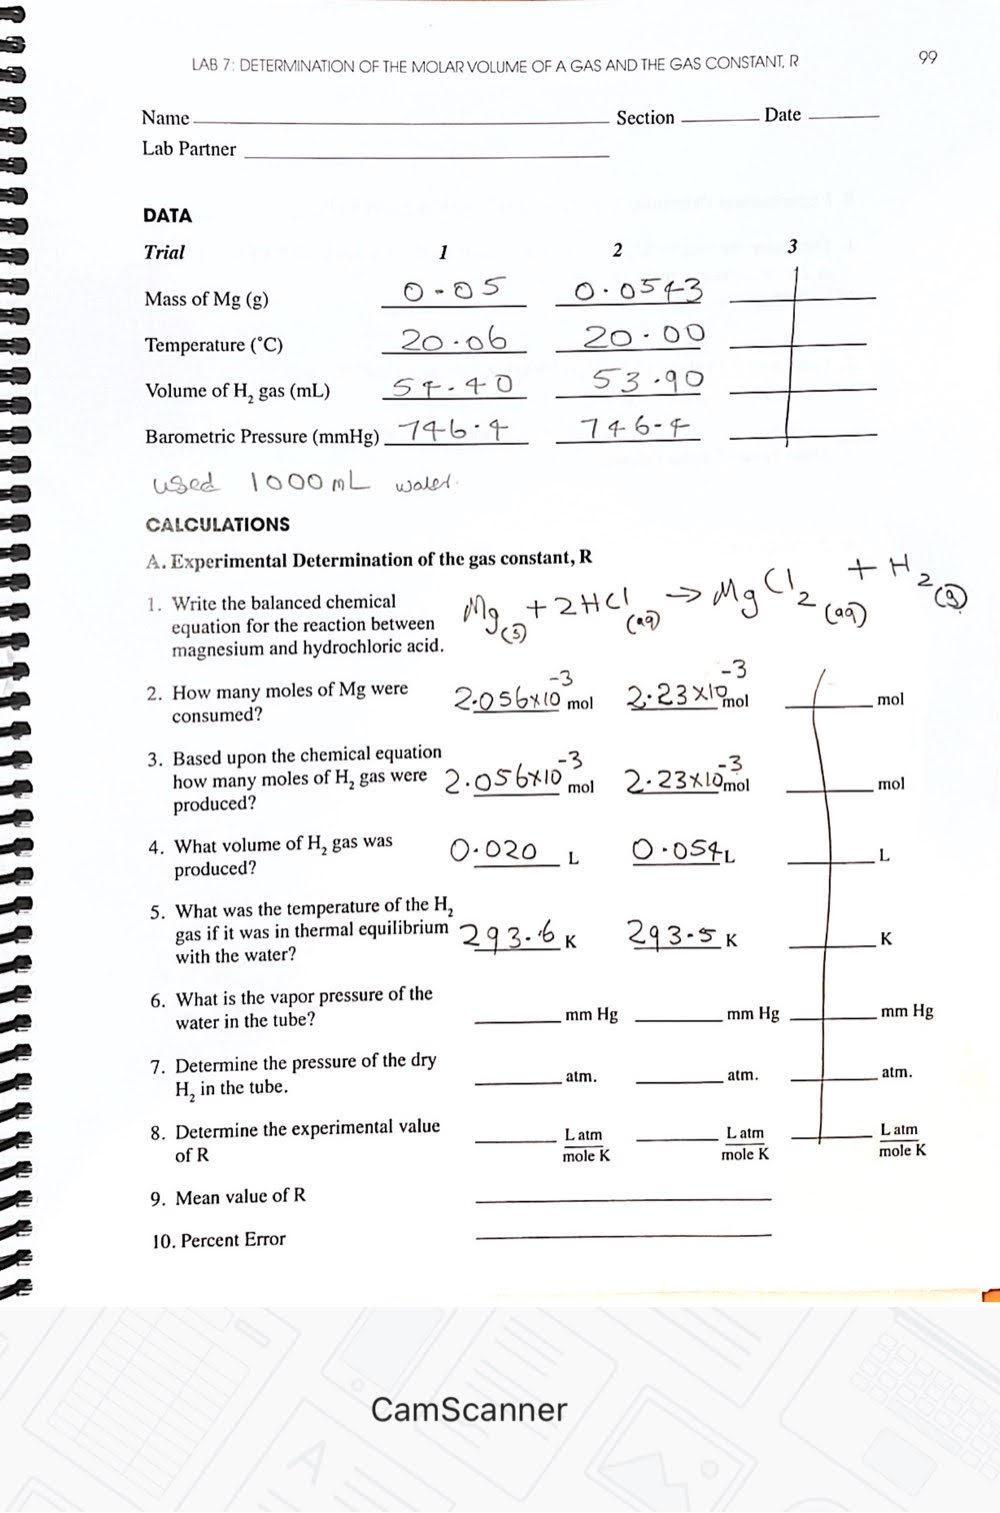 LAB 7: DETERMINATION OF THE MOLAR VOLUME OF A GAS AND THE GAS CONSTANT, R 99
Name Section Date
Lab Partner
DATA
Trial 1 2 3
Mass of Mg (g) 0.05 0.0543
Temperature (°C) 20.06 20.00
Volume of H₂ gas (mL) 54.40 53.90
Barometric Pressure (mmHg) 746.4 746.4
used 1000 mL water.
CALCULATIONS
A. Experimental Determination of the gas constant, R
1. Write the balanced chemical equation for the reaction between magnesium and hydrochloric acid.
Mg(s) + 2HCl(aq) → MgCl₂(aq) + H₂(g)
2. How many moles of Mg were consumed? 2.056x10⁻³ mol 2.23x10⁻³ mol mol
3. Based upon the chemical equation how many moles of H₂ gas were produced? 2.056x10⁻³ mol 2.23x10⁻³ mol mol
4. What volume of H₂ gas was produced? 0.020 L 0.054 L L
5. What was the temperature of the H₂ gas if it was in thermal equilibrium with the water? 293.6 K 293.5 K K
6. What is the vapor pressure of the water in the tube? mm Hg mm Hg mm Hg
7. Determine the pressure of the dry H₂ in the tube. atm. atm. atm.
8. Determine the experimental value of R L atm / mole K L atm / mole K L atm / mole K
9. Mean value of R
10. Percent Error
CamScanner